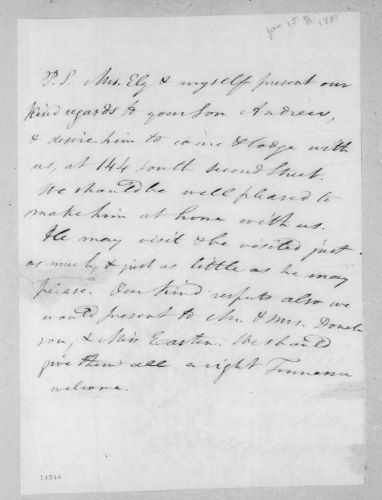 Jan 15th 1830
P.S. Mrs. Ely & myself present our
kind regards to your Son Andrew,
& desire him to come & lodge with
us, at 144 South Second Street.
We should be well pleased to
make him at home with us.
He may visit & be visited just
as much, & just as little as he may
please. Our kind respects also we
would present to Mr. & Mrs. Donel
son, & Miss Easten. We should
give them all a right Tennessee
welcome.